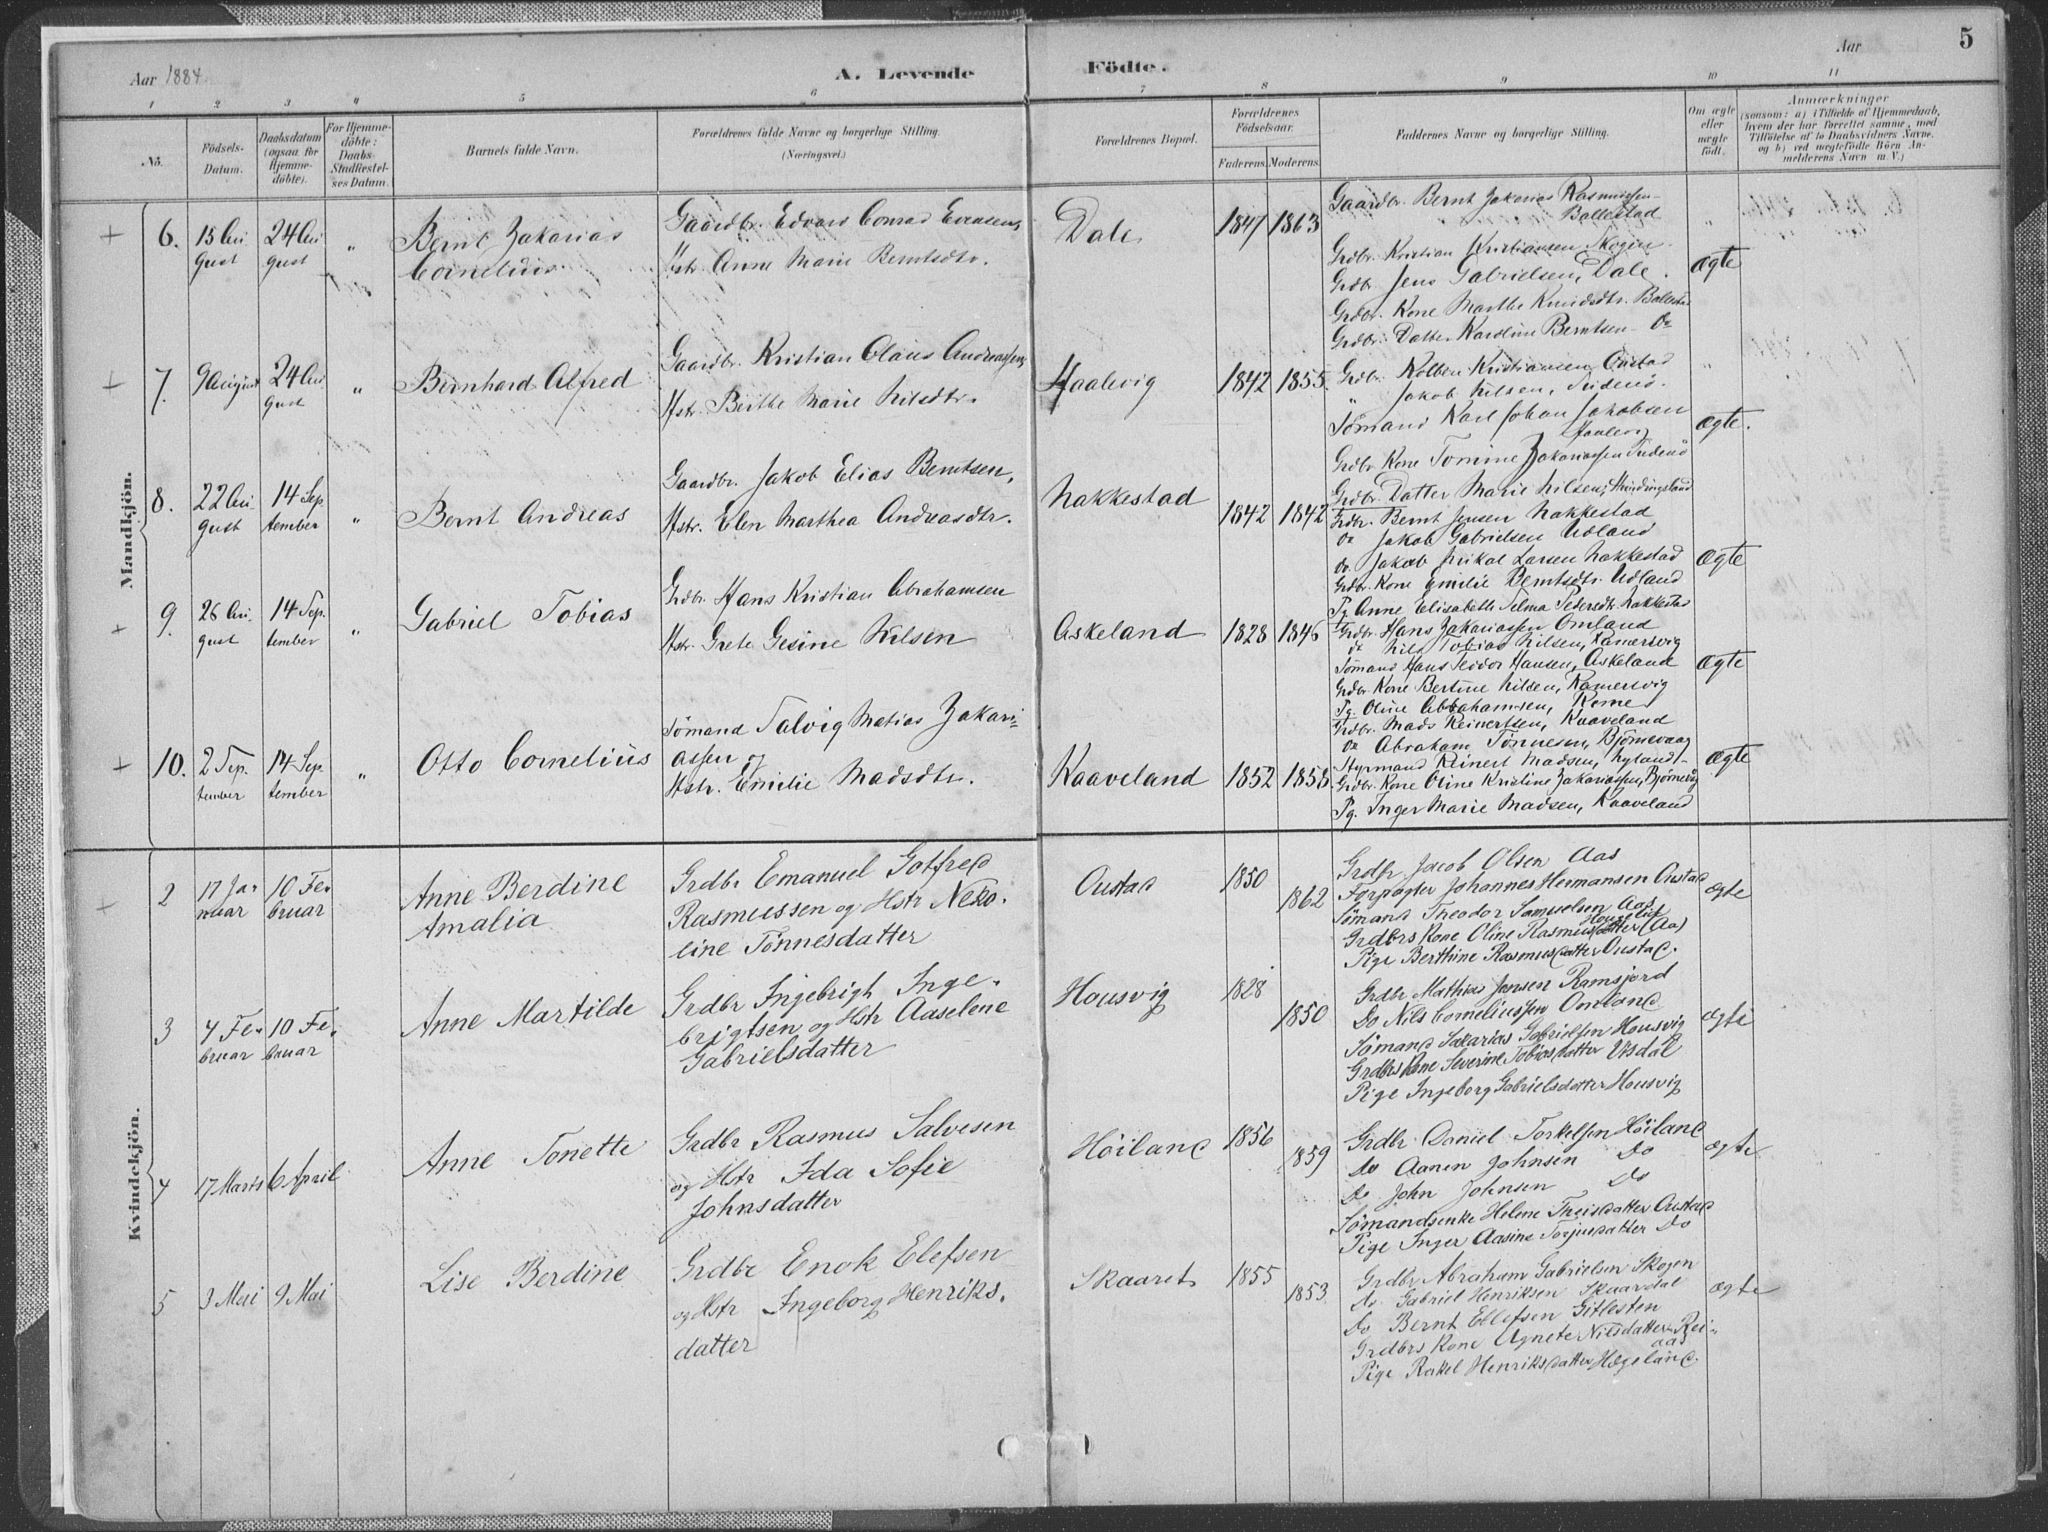 Aar 1884.
A. Levende
Födte.
Aar
5
1 2 3 4 5 6 7 8 9 10 11
No.
Födsels-
Datum.
Daabsdatum
(ogsaa for
Hjemme-
döbte).
For Hjemme-
döbte:
Daabs-
Stadfæstel-
ses Datum.
Barnets fulde Navn.
Forældrenes fulde Navne og borgerlige Stilling.
(Næringsvei.)
Forældrenes Bopæl.
Forældrenes
Födselsaar.
Faderens. Moderens.
Faddernes Navne og borgerlige Stilling.
Om ægte
eller
uægte
født.
Anmærkninger
(saasom: a) i Tilfælde af Hjemmedaab,
hvem der har forrettet samme, med
Tilföielse af to Daabsvidners Navne,
og b) ved uægtefödte Börn An-
melderens Navn m. V.)
Mandkjön.
6. 15 Au
gust
24 Au
gust
"
Bernt Zakarias
Cornelius
Gaardbr. Edvard Conrad Evensen,
Hstr. Anne Marie Berntsdtr.
Dale
1847 1863
Gaardbr. Bernt Zakarias Rasmussen
Ballestad
Grdbr. Kristian Kristiansen Skogen
Grdbr. Jens Gabrielsen, Dale.
Grdbr. Kone Marthe Knudsdtr. Ballestad
Grdbr. Datter Karoline Berntsen do
Ægte
7. 9 August
24 Au
gust
"
Bernhard Alfred
Gaardbr. Kristian Olaus Andreassen,
Hstr. Berthe Marie Nilsdtr.
Haalevig
1842 1855
Grdbr. Kolben Kristiansen, Oustad
" Jakob Nilsen,
Sömand Karl Johan Jakobsen
Grdbr. Kone Tomine Zakariassen
Grdbr. Datter Marie Nilsen,
Ægte.
8. 22 Au
gust
14 Sep
tember
"
Bernt Andreas
Gaardbr. Jakob Elias Berntsen,
Hstr. Elen Marthea Andreasdtr.
Nakkestad
1842 1842
Grdbr. Bernt Jensen Nakkestad
do Jakob Gabrielsen Udland
do. Jakob Mikal Larsen Nakkestad
Grdbr. Kone Emilie Berntsdtr. Udland
Pg. Anne Elisabeth Telma Pedersdtr. Nakkestad
Ægte
9. 26 Au
gust
14 Sep
tember
"
Gabriel Tobias
Grdbr. Hans Kristian Abrahamsen
Hstr. Grete Gesine Nilsen
Askeland
1828 1846
Grdbr. Hans Zakariassen Omland
do Nils Tobias Nilsen, Ramersvig
Sömand Hans Teodor Hansen, Askeland
Grdbr. Kone Bertine Nilsen, Ramersvig
Pg. Oline Abrahamsen, Rome
Ægte
10. 2 Sep.
tember
14 Sep
tember
"
Otto Cornelius
Sömand Salvig Matias Zakari-
assen og
Hstr. Emilie Madsdtr.
Kaaveland
1852 1858
Grdbr. Mads Reinertsen, Kaaveland
do Abraham Tönnesen, Björnevaag
Styrmand Reinert Madsen, Nyland
Grdbr. Kone Oline Kristine Zakariassen, Björnevåg
Pg. Inger Marie Madsen, Kaaveland
Ægte
Kvindekjön.
2 17 Ja-
nuar
10 Fe-
bruar
Anne Berdine
Amalia
Grdbr Emanuel Gotfred
Rasmussen og Hstr Neko-
line Tönnesdatter
Oustad
1850
1862
Grdbr Jacob Olsen Aas
Forpagter Johannes Hermansen Oustad
Sömand Theodor Samuelsen Aas
Grdbrs Kone Oline Rasmusdatter (Aas)
Pige Berthine Rasmusdatter Oustad.
ægte
3 4 Fe-
bruar
10 Fe-
bruar
Anne Martilde
Grdbr Ingebrigh Inge-
brigtsen og Hstr Aaselene
Gabrielsdatter
Housvig
1828
1850
Grdbr Mathias Jensen Ramsjord
Do Nils Corneliussen Omland
Sömand Sakarias Gabrielsen Housvig
Grdbrs Kone Severine Tobiasdatter Uisdal
Pige Ingeborg Gabrielsdatter Housvig
ægte
4 17 Marts 6 April
Anne Tonette
Grdbr Rasmus Salvesen
og Hstr Ida Sofie
Johnsdatter
Höiland
1856
1859
Grdbr Daniel Torkelsen Höiland
Do Aanen Johnsen Do
Do John Johnsen Do
Sömandsenke Helene Theisdatter Oustad
Pige Inger Aasine Torjusdatter Do
ægte
5 3 Mai 9 Mai
Lise Berdine
Grdbr Enok Elefsen
og Hstr Ingeborg Henriks-
datter
Skaaret
1855
1853
Grdbr Abraham Gabrielsen Skogen
Do Gabriel Henriksen Skaardal
Do Bernt Ellefsen Gitlesten
Grdbrs Kone Agnete Nilsdatter Rei-
aas
Pige Rakel Henriksdatter Hægeland.
ægte